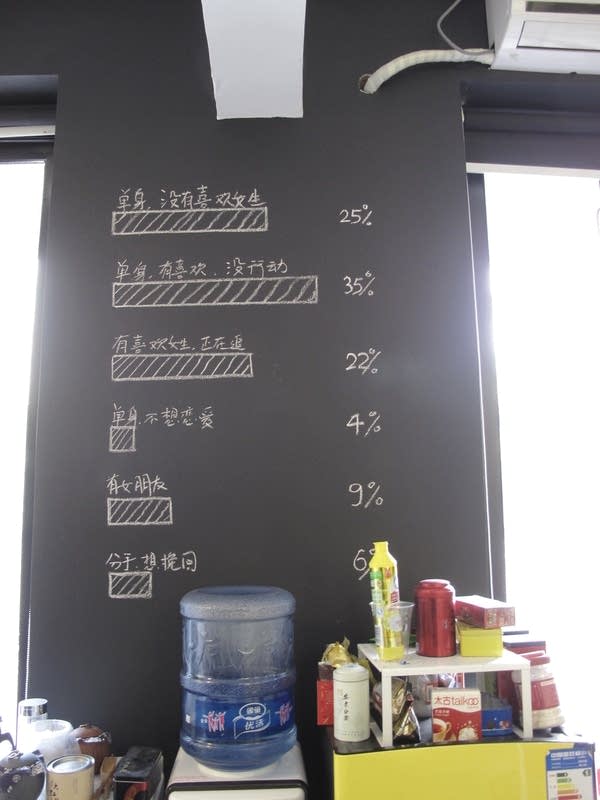 单身, 没有喜欢女生
25%
单身, 有喜欢, 没行动
35%
有喜欢女生, 正在追
22%
单身, 不想恋爱
4%
有女朋友
9%
分手, 想挽回
6%
优活
太古taikoo